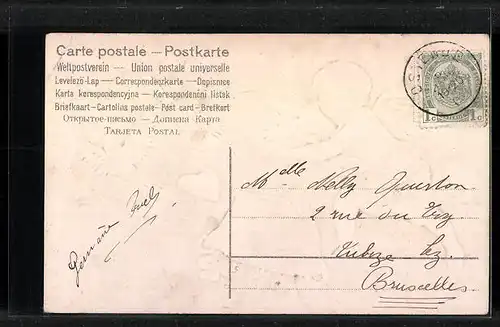 Carte postale — Postkarte
Weltpostverein — Union postale universelle
Levelező-Lap — Correspondenzkarte — Dopisnice
Karta korespondencyjna — Korespondenční lístek
Briefkaart — Cartolina postale — Post card — Brefkort
Открытое письмо — Дописни Карта
TARJETA POSTAL
1c 1c
Melle Nelly
2 rue du
Tubize
Bruxelles